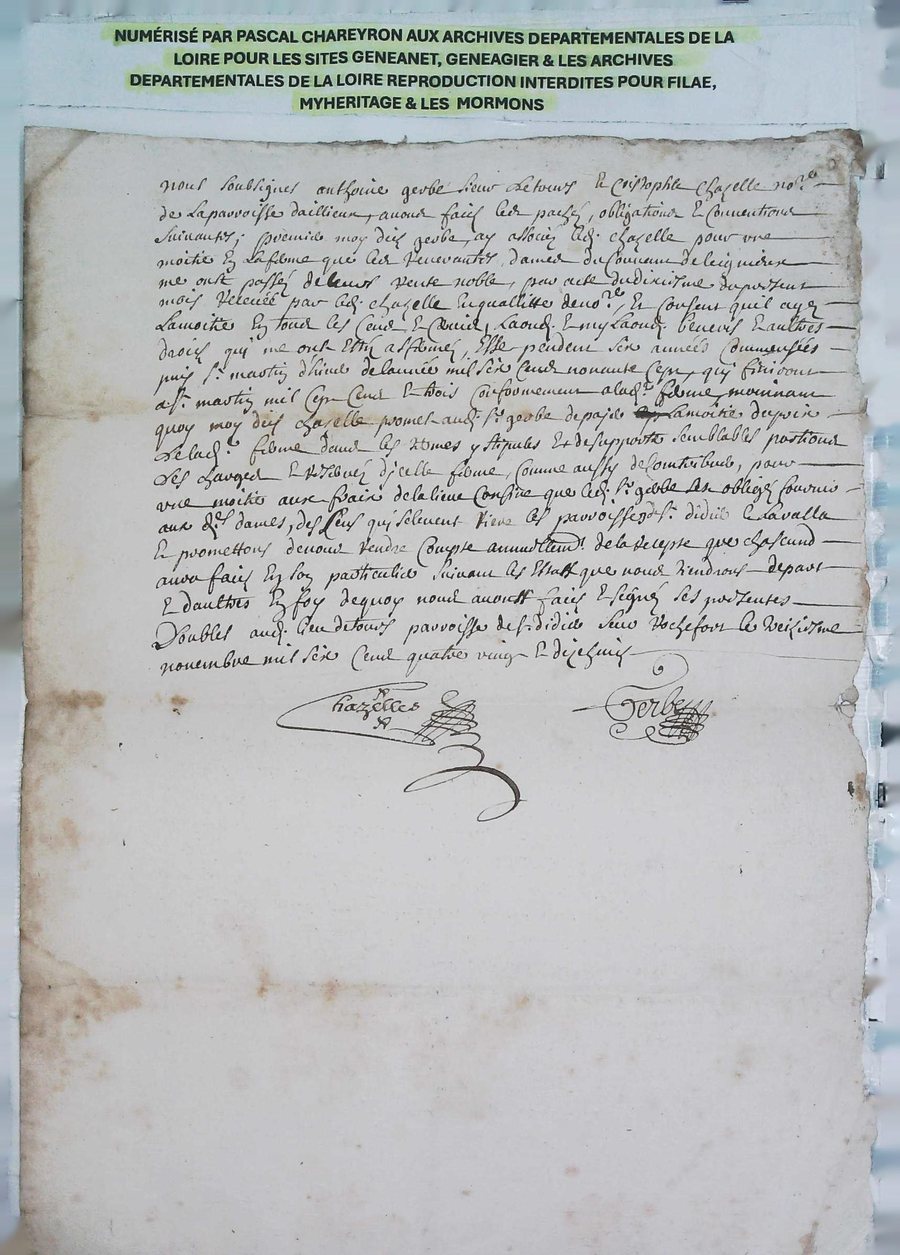 NUMÉRISÉ PAR PASCAL CHAREYRON AUX ARCHIVES DEPARTEMENTALES DE LA
LOIRE POUR LES SITES GENEANET, GENEAGIER & LES ARCHIVES
DEPARTEMENTALES DE LA LOIRE REPRODUCTION INTERDITES POUR FILAE,
MYHERITAGE & LES MORMONS
nous soubsignes anthoine gerbe sieur de tours et cristophle chazelle no.re
de la parroisse daillieux, avons faict les pachés, obligations et conventions
suivantes; premier moy dict gerbe, ay associé led. chazelle pour une
moitié en la ferme que les reverantes dames du couvant de leignieux
me ont passée de leurs rente noble, par acte du dixiesme du present
mois receue par led. chazelle en quallitte de no.re, et consent quil aye
la moitie en tous les cens et servis, laods et mylaods, benevis et aultres
droits qui me ont estés affermés, pendent six années commensées
puis st. martin d'hiver de lannée mil six cens nonante sept, qui finiront
a st. martin mil sept cens et trois conformement a lad. ferme, moienant
quoy moy dict chazelle promet aud. sr. gerbe de payer la moitie du prix
de lad. ferme dans les termes y stipules et de supporter semblables portions
des charges et reserves dicelle ferme, comme aussy de contribuer, pour
une moitie aux frais de la que led. sr. gerbe est obligé fournir
aux d.es dames, des cens qui se levent riere les parroisses de st. didier et lavalla
et promettons de nous rendre compte annuellem.t de la recepte que chascuns
aura faict en son particulier suivant les estatz que nous tiendrons de part
et daultres en foy de quoy nous avons faict et signés ses presentes
doubles aud. lieu de tours parroisse de st. didier sur rochefort le
novembre mil six cens quatre vingt et dixhuict
Chazelles
Gerbe